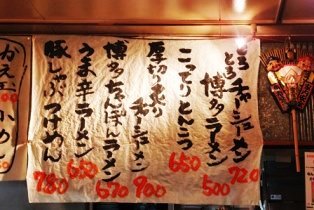 とろとろチャーシューメン 720
博多ラーメン 500
こってりとんこつ 650
厚切り炙りチャーシューメン 900
博多ちゃんぽんラーメン 670
うま辛ラーメン 650
豚しゃぶつけめん 780
かえ玉